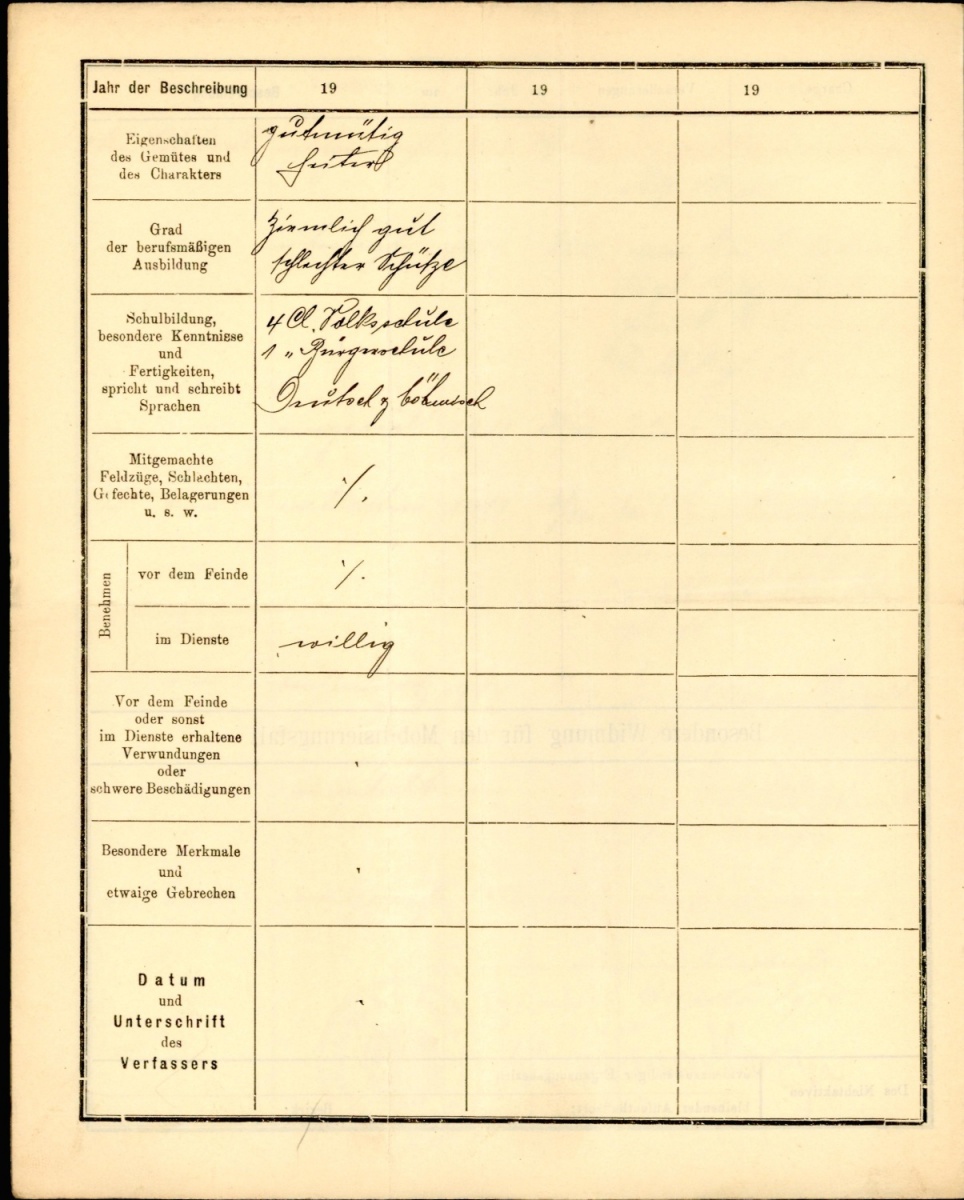 Jahr der Beschreibung 19 19 19
Eigenschaften
des Gemütes und
des Charakters
gutmütig
heiter
Grad
der berufsmäßigen
Ausbildung
Ziemlich gut
schlechter Schütze
Schulbildung,
besondere Kenntnisse
und
Fertigkeiten,
spricht und schreibt
Sprachen
4 Cl. Volksschule
1 „ Bürgerschule
Deutsch & böhmisch
Mitgemachte
Feldzüge, Schlachten,
Gefechte, Belagerungen
u. s. w.
·/.
Benehmen
vor dem Feinde
·/.
im Dienste
willig
Vor dem Feinde
oder sonst
im Dienste erhaltene
Verwundungen
oder
schwere Beschädigungen
Besondere Merkmale
und
etwaige Gebrechen
Datum
und
Unterschrift
des
Verfassers